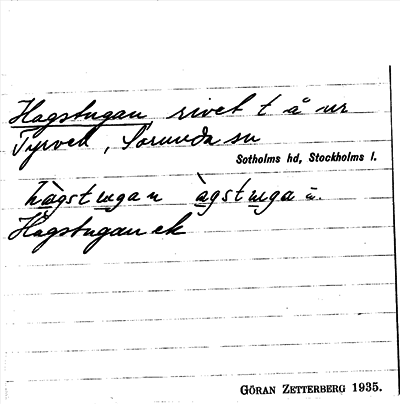 Hagstugan, rivet t å ur
Tyrved, Sorunda sn
Sotholms hd, Stockholms l.
hàgstugan àgstuga ü.
Hagstugan ek
GÖRAN ZETTERBERG 1935.